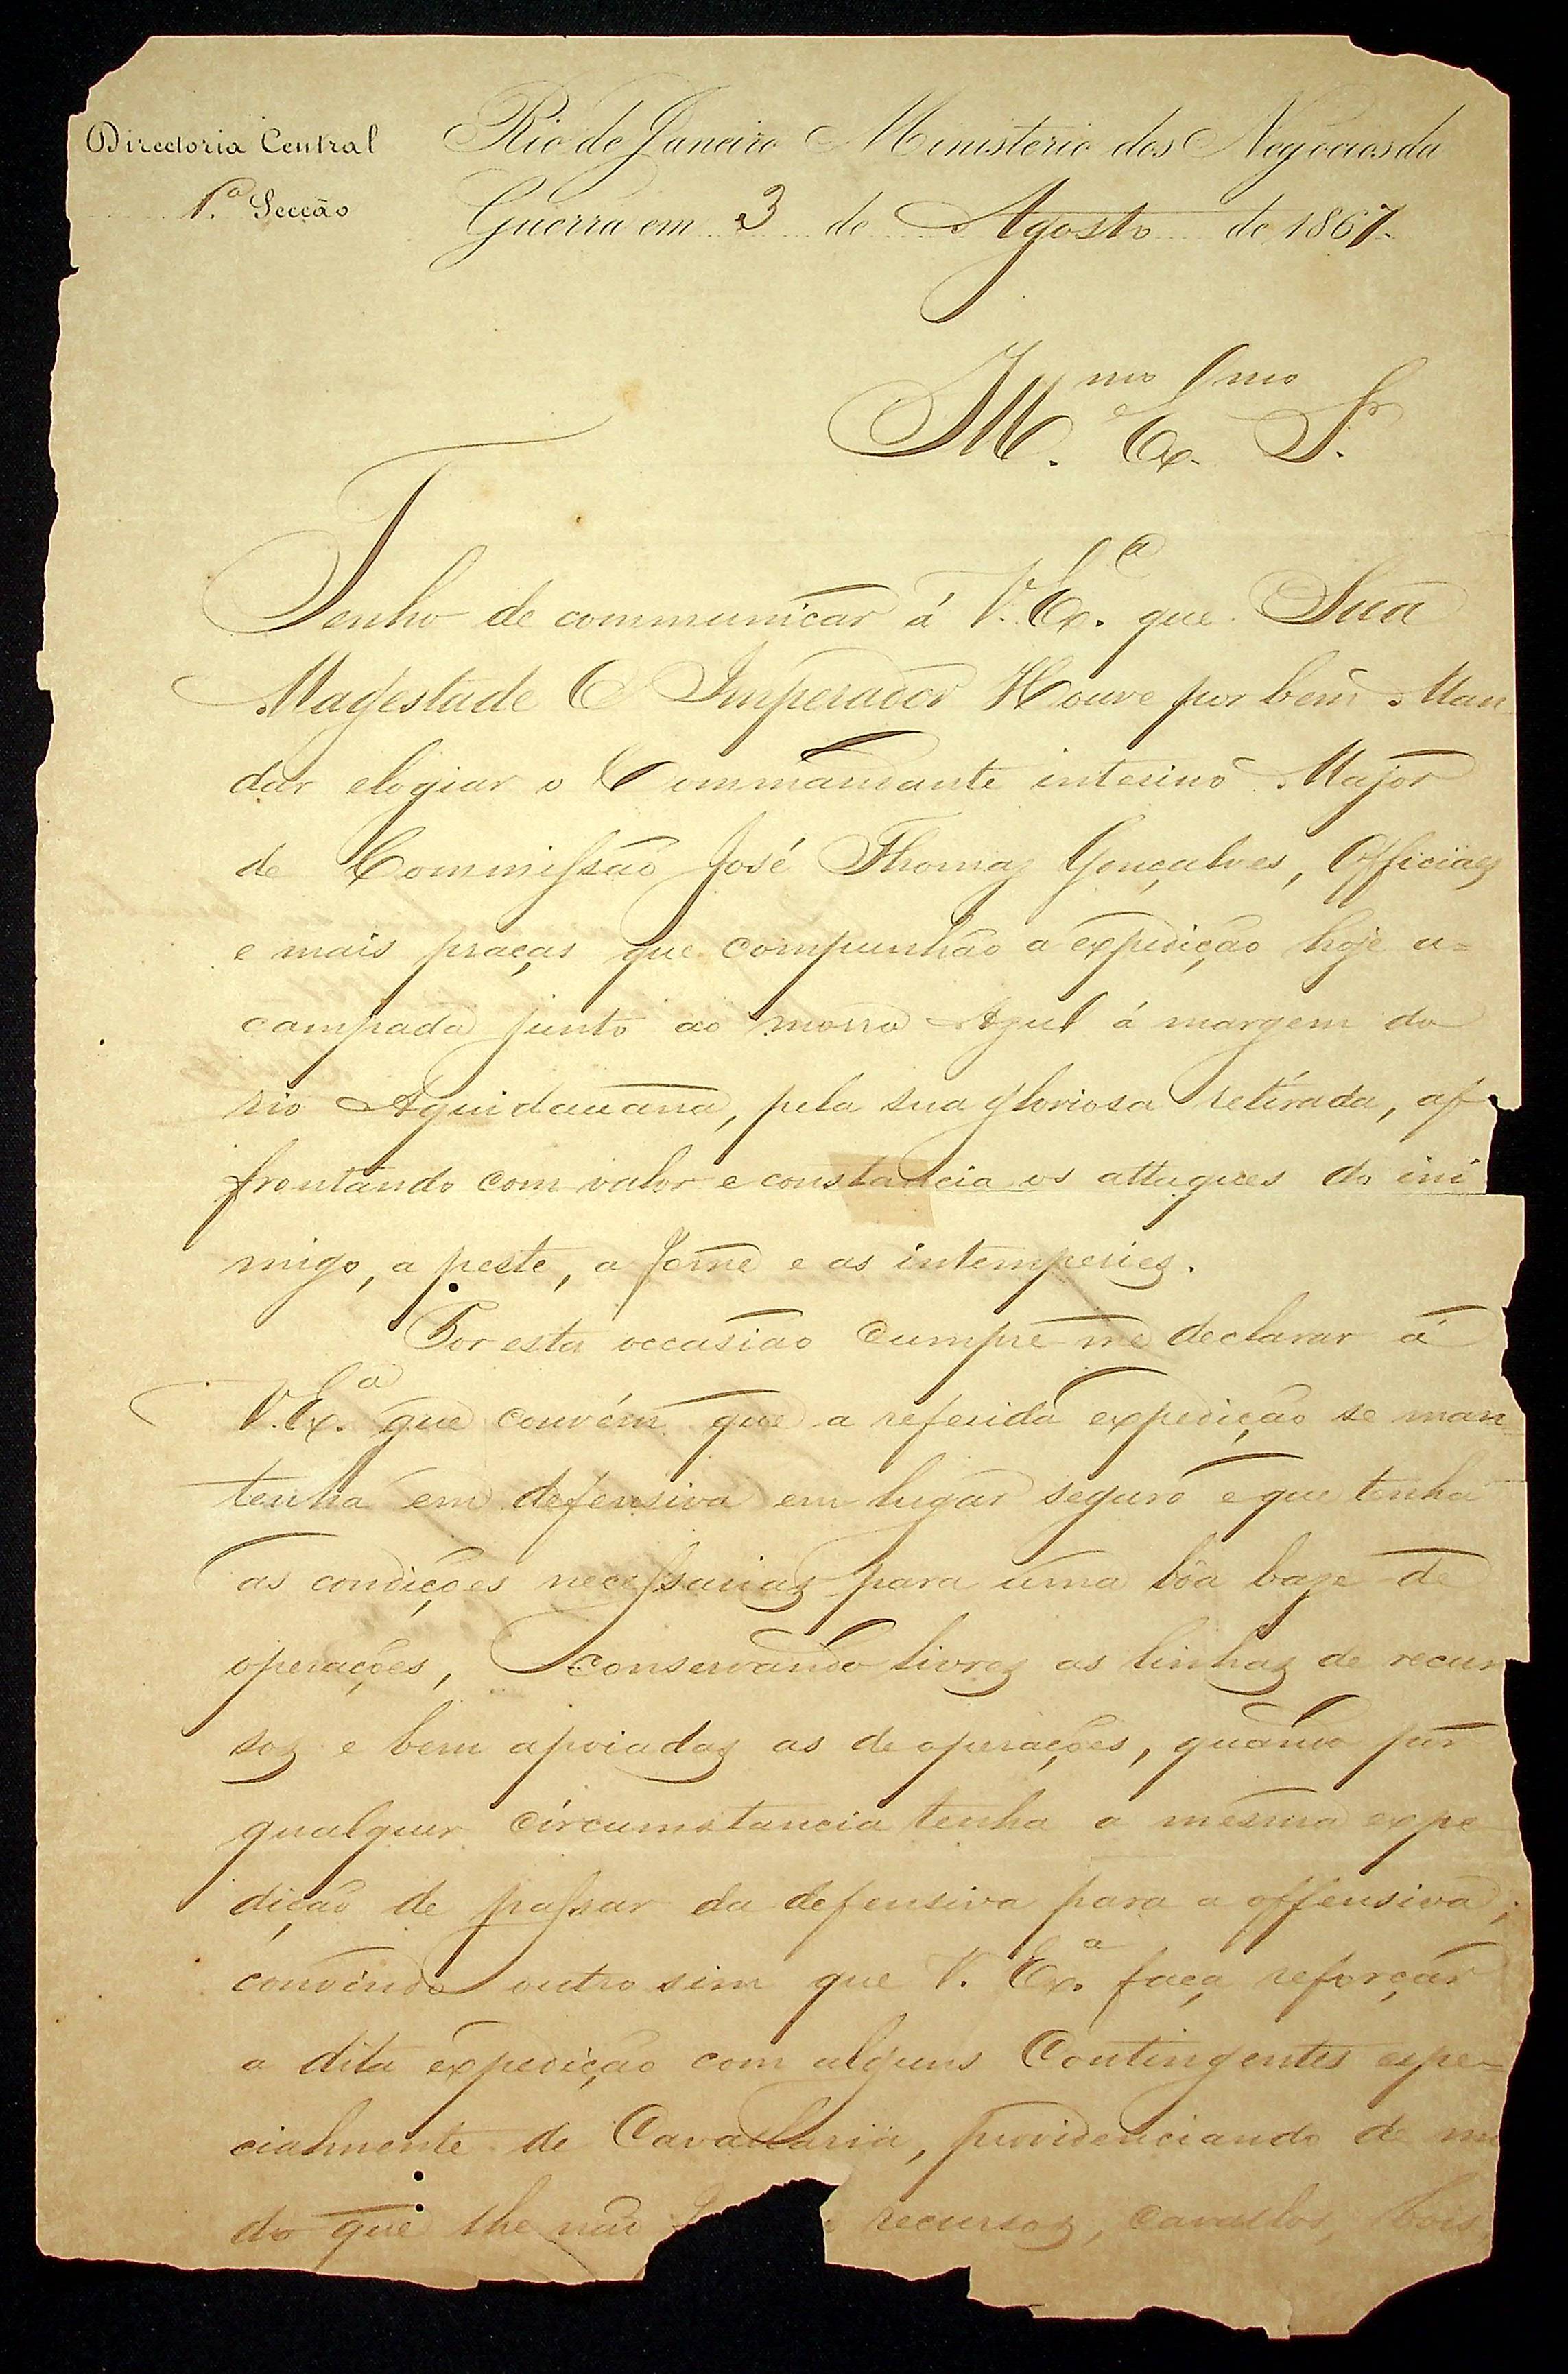 Directoria Central
1.ª Secção
Rio de Janeiro Ministerio dos Negocios da
Guerra em 3 de Agosto de 1867.
Ill.mo Ex.mo Sr.
Tenho de communicar á V. Ex.a que Sua
Magestade O Imperador Houve por bem Man
dar elogiar o Commandante interino Major
de Commissão José Thomaz Gonçalves, Officiaes
e mais praças que compunhão a expedição hoje a=
campada junto ao morro Azul á margem do
rio Aquidauana, pela sua gloriosa retirada, af
frontando com valor e constancia os attaques do ini
migo, a peste, a fome e as intemperies.
Por esta occasião cumpre-me declarar á
V. Ex.a que convém que a referida expedição se man
tenha em defensiva em lugar seguro e que tenha
as condições necessarias para uma bôa base de
operações, conservando livres as linhas de recur
sos e bem apoiadas as de operações, quando por
qualquer circumstancia tenha a mesma expe
dição de passar da defensiva para a offensiva;
convindo outro sim que V. Ex.a faça reforçar
a dita expedição com alguns Contingentes espe-
cialmente de Cavallaria, providenciando de mo
do que lhe não recursos, cavallos, bois